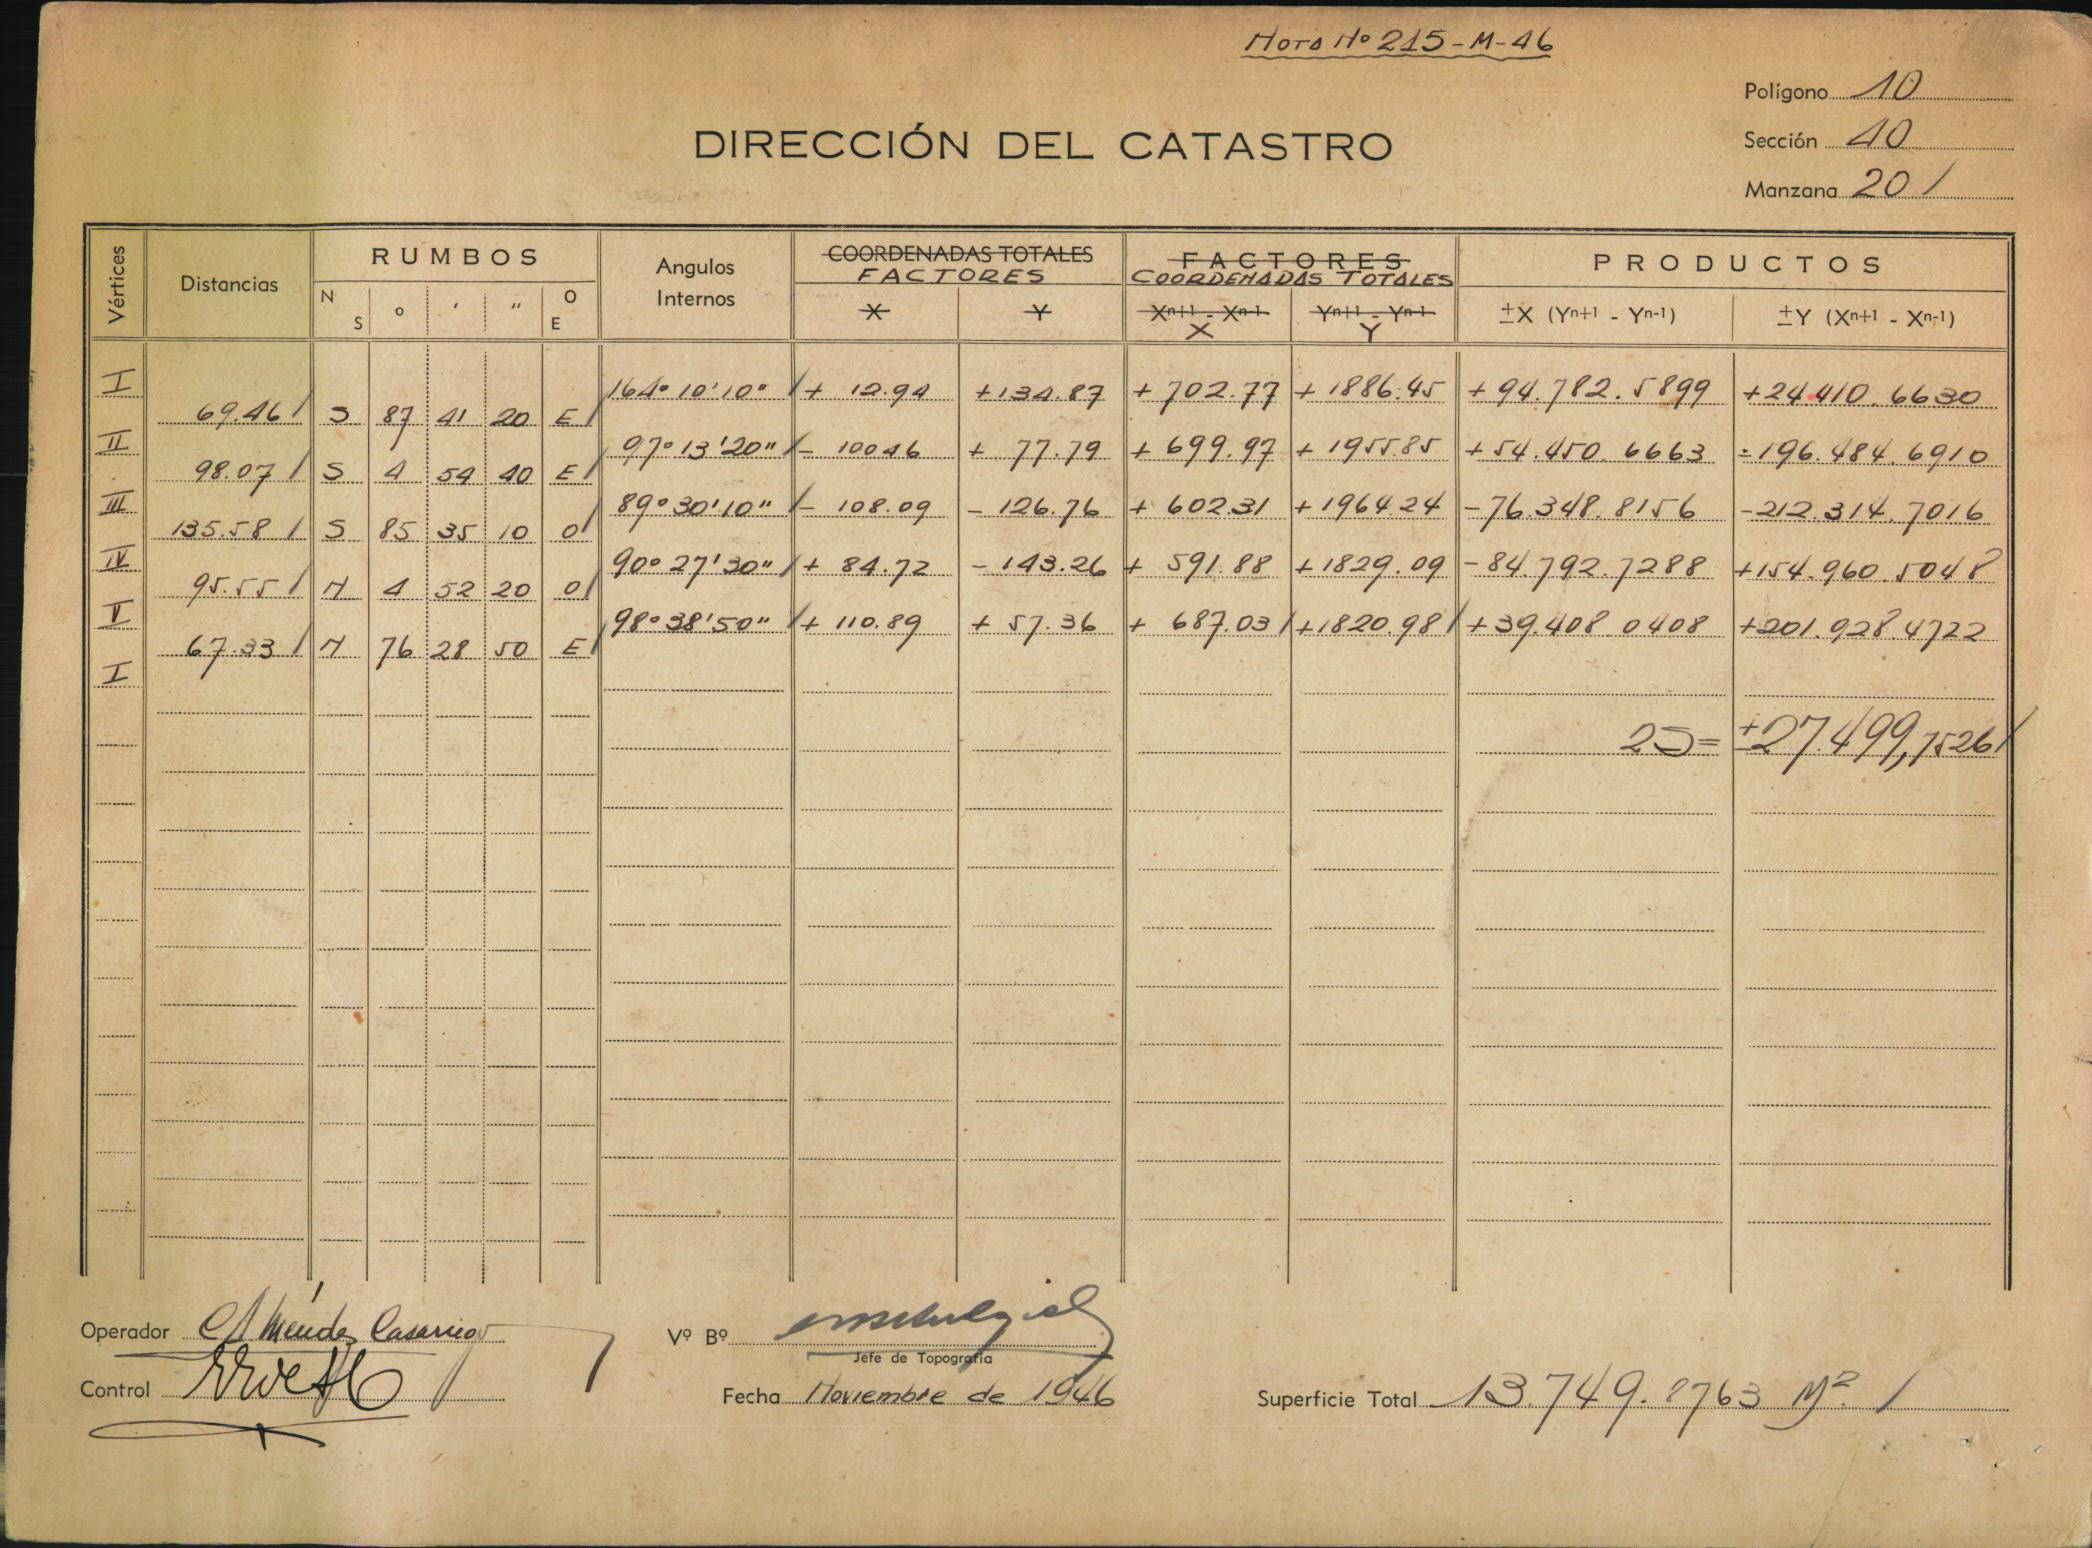 Hoja Nº 215-M-46
Polígono 10
Sección 10
Manzana 201
DIRECCIÓN DEL CATASTRO
Vértices Distancias RUMBOS Angulos Internos COORDENADAS TOTALES FACTORES FACTORES COORDENADAS TOTALES PRODUCTOS
N S o ' " O E X Y Xn+1 - Xn-1 X Yn+1 - Yn-1 Y ±X (Yn+1 - Yn-1) ±Y (Xn+1 - Xn-1)
I 164º 10' 10" + 12.94 +134.87 + 702.77 + 1886.45 + 94.782.5899 +24.410.6630
69.46 S 87 41 20 E
II 97º 13' 20" - 100 46 + 77.79 + 699.97 + 1955.85 + 54.450.6663 -196.484.6910
98.07 S 4 54 40 E
III 89º 30' 10" - 108.09 - 126.76 + 602.31 + 1964.24 -76.348.8156 -212.314.7016
135.58 S 85 35 10 O
IV 90º 27' 30" + 84.72 - 143.26 + 591.88 +1829.09 -84.792.7288 +154.960.5048
95.55 N 4 52 20 O
V 98º 38' 50" + 110.89 + 57.36 + 687.03 +1820.98 +39.408.0408 +201.928.4722
67.33 N 76 28 50 E
I
2S= ±27.499,7526
Operador Méndez Casariego
Vº Bº
Jefe de Topografía
Control
Fecha Noviembre de 1946
Superficie Total 13.749.8763 M2.